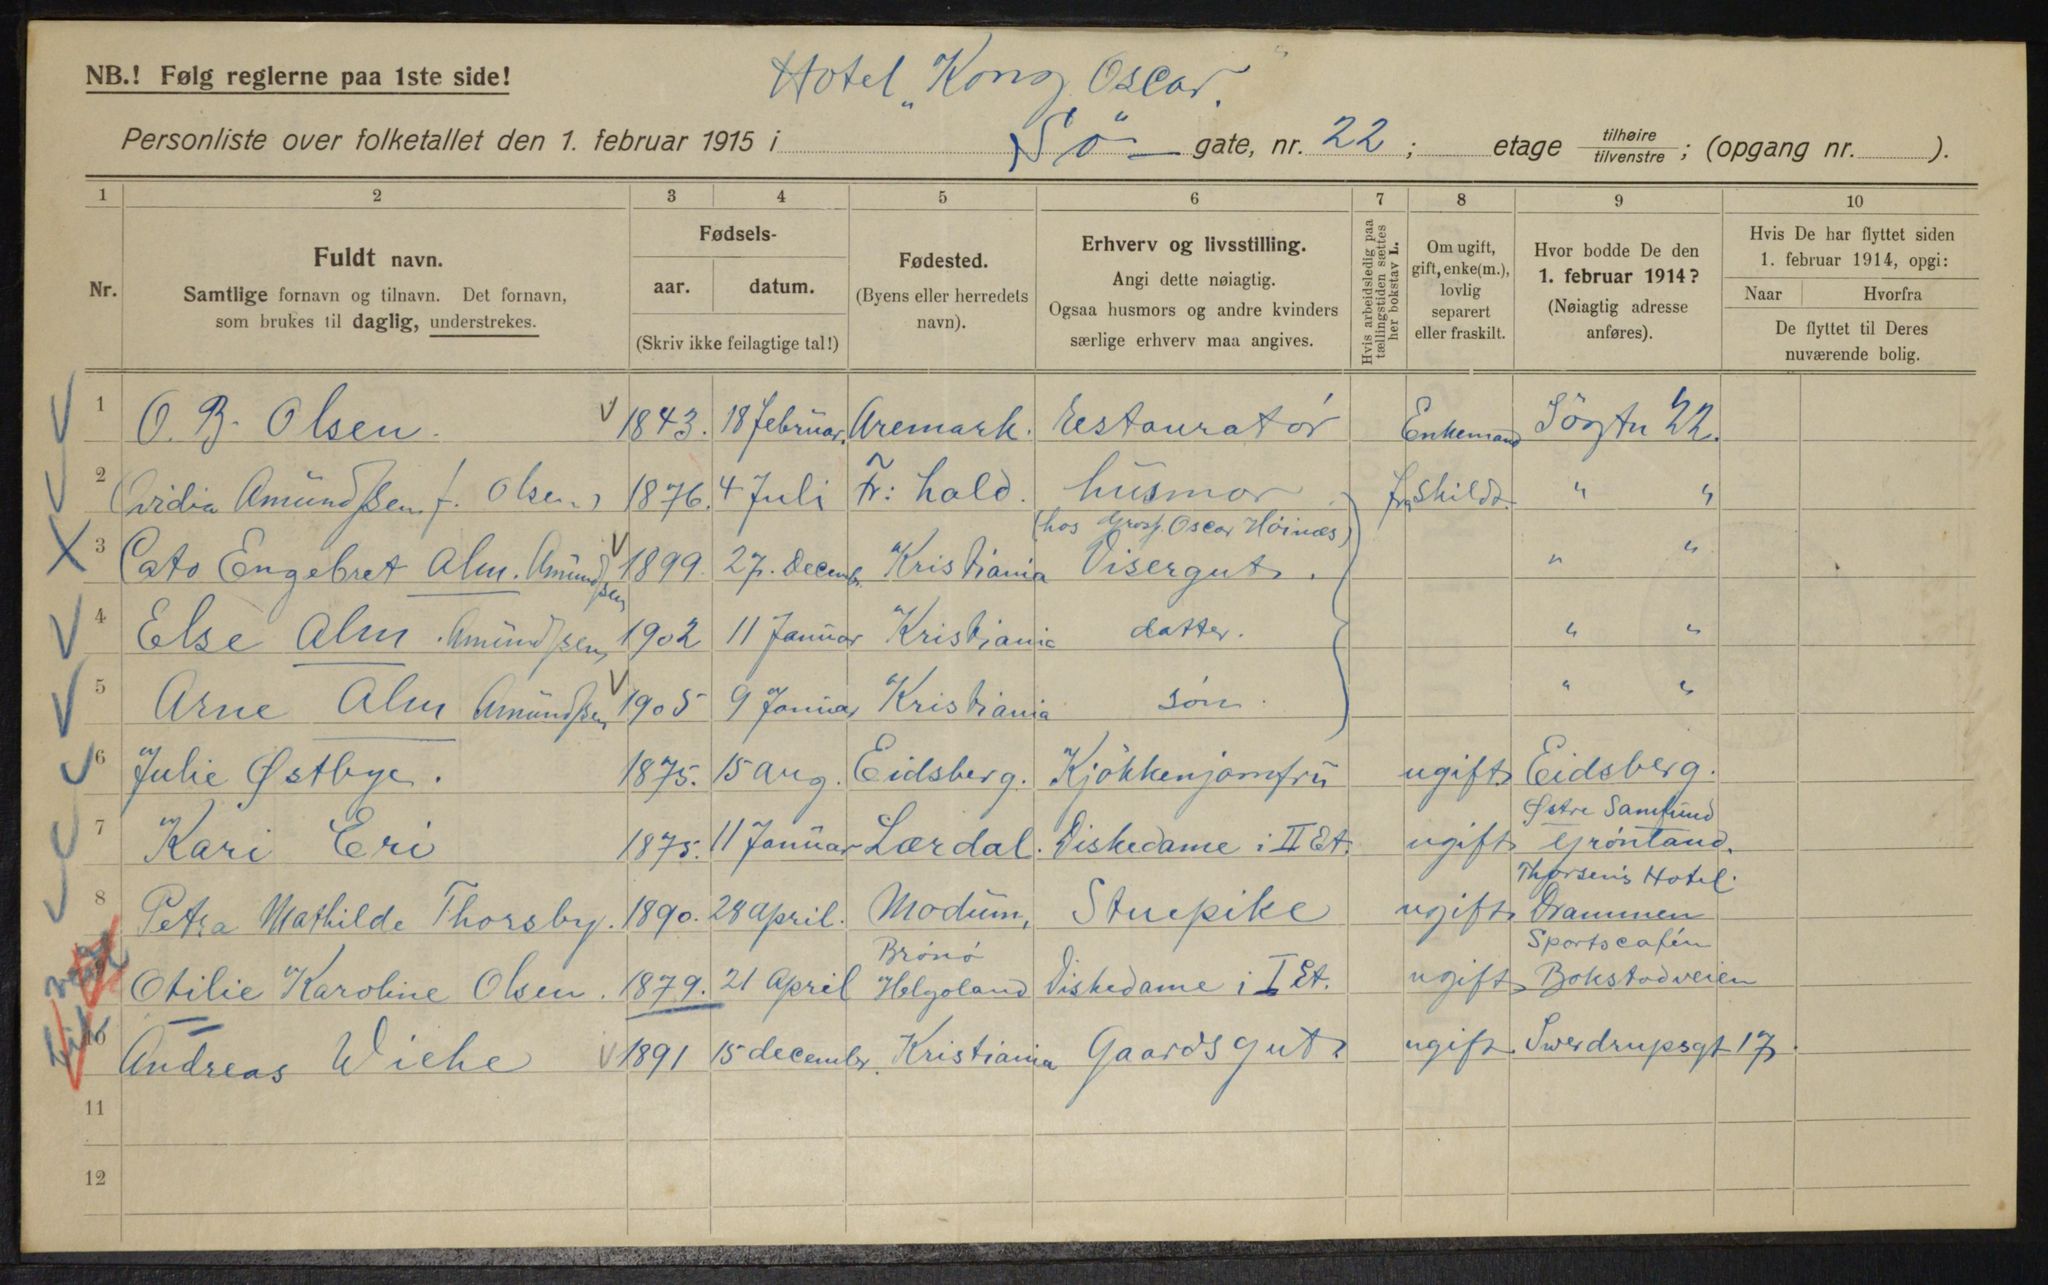 Hotel „Kong Oscar."
NB.! Følg reglerne paa 1ste side!
Personliste over folketallet den 1. februar 1915 i Sö- gate, nr. 22 ; etage tilhøire / tilvenstre ; (opgang nr. ).
1 2 3 4 5 6 7 8 9 10
Nr.
Fuldt navn.
Samtlige fornavn og tilnavn. Det fornavn,
som brukes til daglig, understrekes.
Fødsels-
aar. datum.
(Skriv ikke feilagtige tal!)
Fødested.
(Byens eller herredets
navn).
Erhverv og livsstilling.
Angi dette nøiagtig.
Ogsaa husmors og andre kvinders
særlige erhverv maa angives.
Hvis arbeidsledig paa
tællingstiden sættes
her bokstav L.
Om ugift,
gift, enke(m.),
lovlig
separert
eller fraskilt.
Hvor bodde De den
1. februar 1914?
(Nøiagtig adresse
anføres).
Hvis De har flyttet siden
1. februar 1914, opgi:
Naar Hvorfra
De flyttet til Deres
nuværende bolig.
1 O. B. Olsen. 1843. 18 februar. Aremark. Restauratör Enkemand Sögtn 22.
2 Ovidia Amundssen f. Olsen 1876. 4 Juli Fr: hald. husmor fraskildt. " "
(hos Gross. Oscar Höinæs)
3 Cato Engebret Alm. Amundssen 1899. 27. Decembr. Kristiania Visergut. " "
4 Else Alm. Amundssen 1902 11 Januar Kristiania datter. " "
5 Arne Alm Amundssen 1905 9 Januar Kristiania sön. " "
6 Julie Østbye. 1875. 15 aug. Eidsberg. Kjökkenjomfru ugift Eidsberg.
Østre Samfund
7 Kari Eri 1875. 11 Januar Lærdal. Diskedame i II Et. ugift Grönland.
Thorsens Hotel
8 Petra Mathilde Thorsby. 1890. 28 april. Modum, Stuepike ugift Drammen
Brönö Sportscafén
9 Otilie Karoline Olsen. 1879. 21 April Helgoland Diskedame i I Et. ugift Bokstadveien
10 Andreas Wiehe 1891 15 decembr. Kristiania Gaardsgut. ugift. Swerdrupsgt 17.
11
12